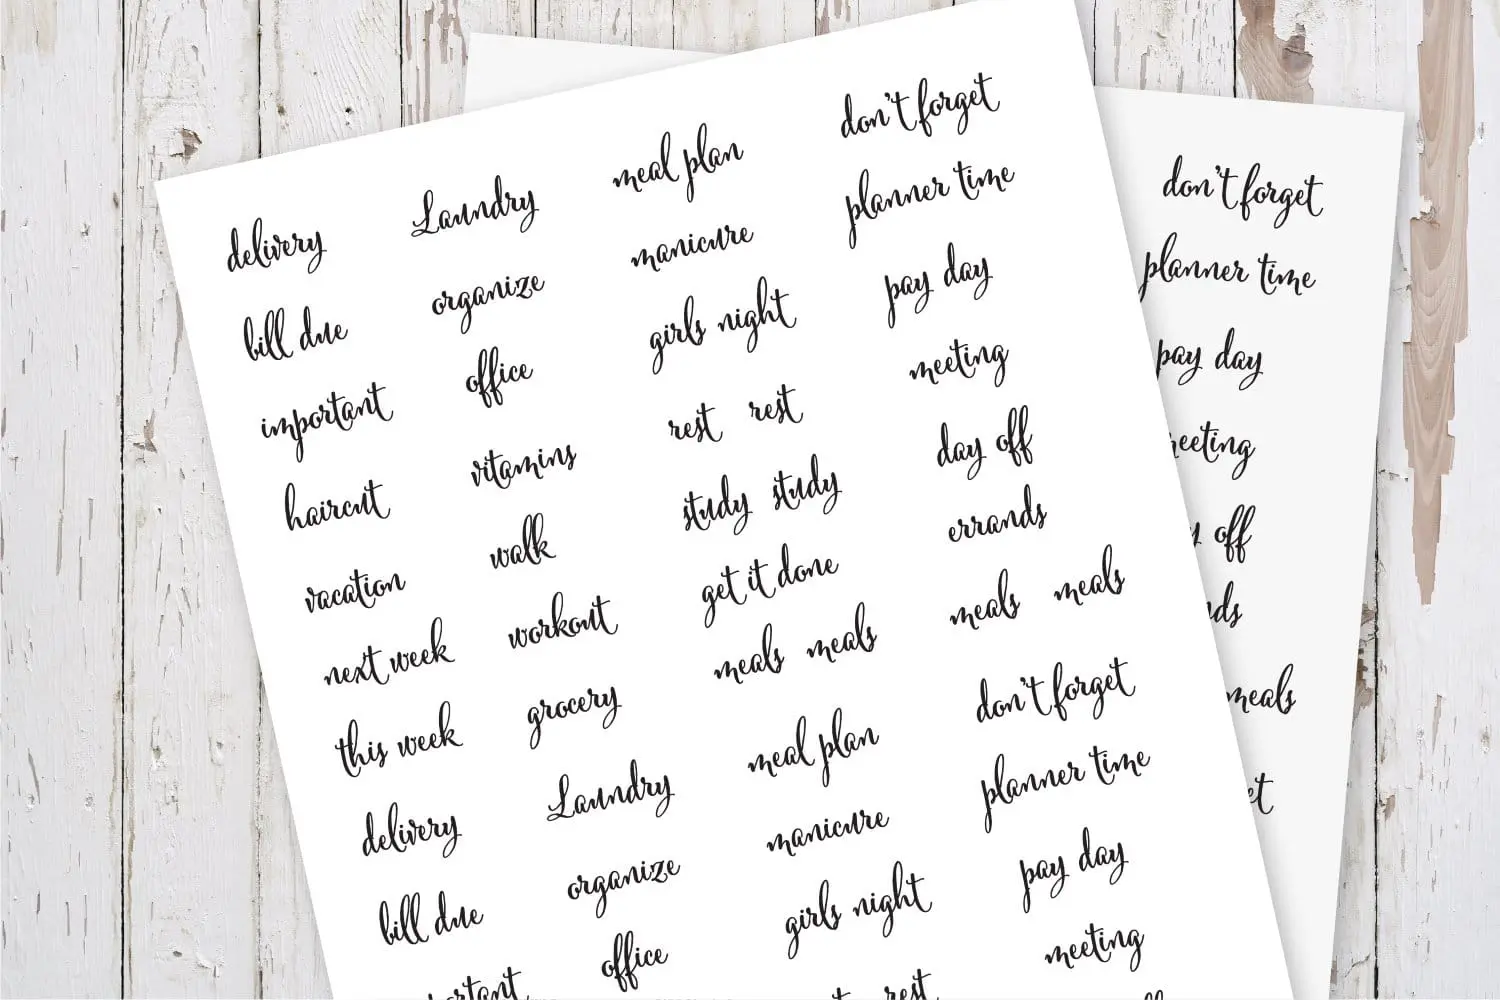 delivery Laundry meal plan don't forget
bill due organize manicure planner time
important office girls night pay day
haircut vitamins rest rest meeting
vacation walk study study day off
next week workout get it done errands
this week grocery meals meals meals meals
delivery Laundry meal plan don't forget
bill due organize manicure planner time
ortant office girls night pay day
rest meeting
don't forget
planner time
pay day
eeting
off
ds
meals
et